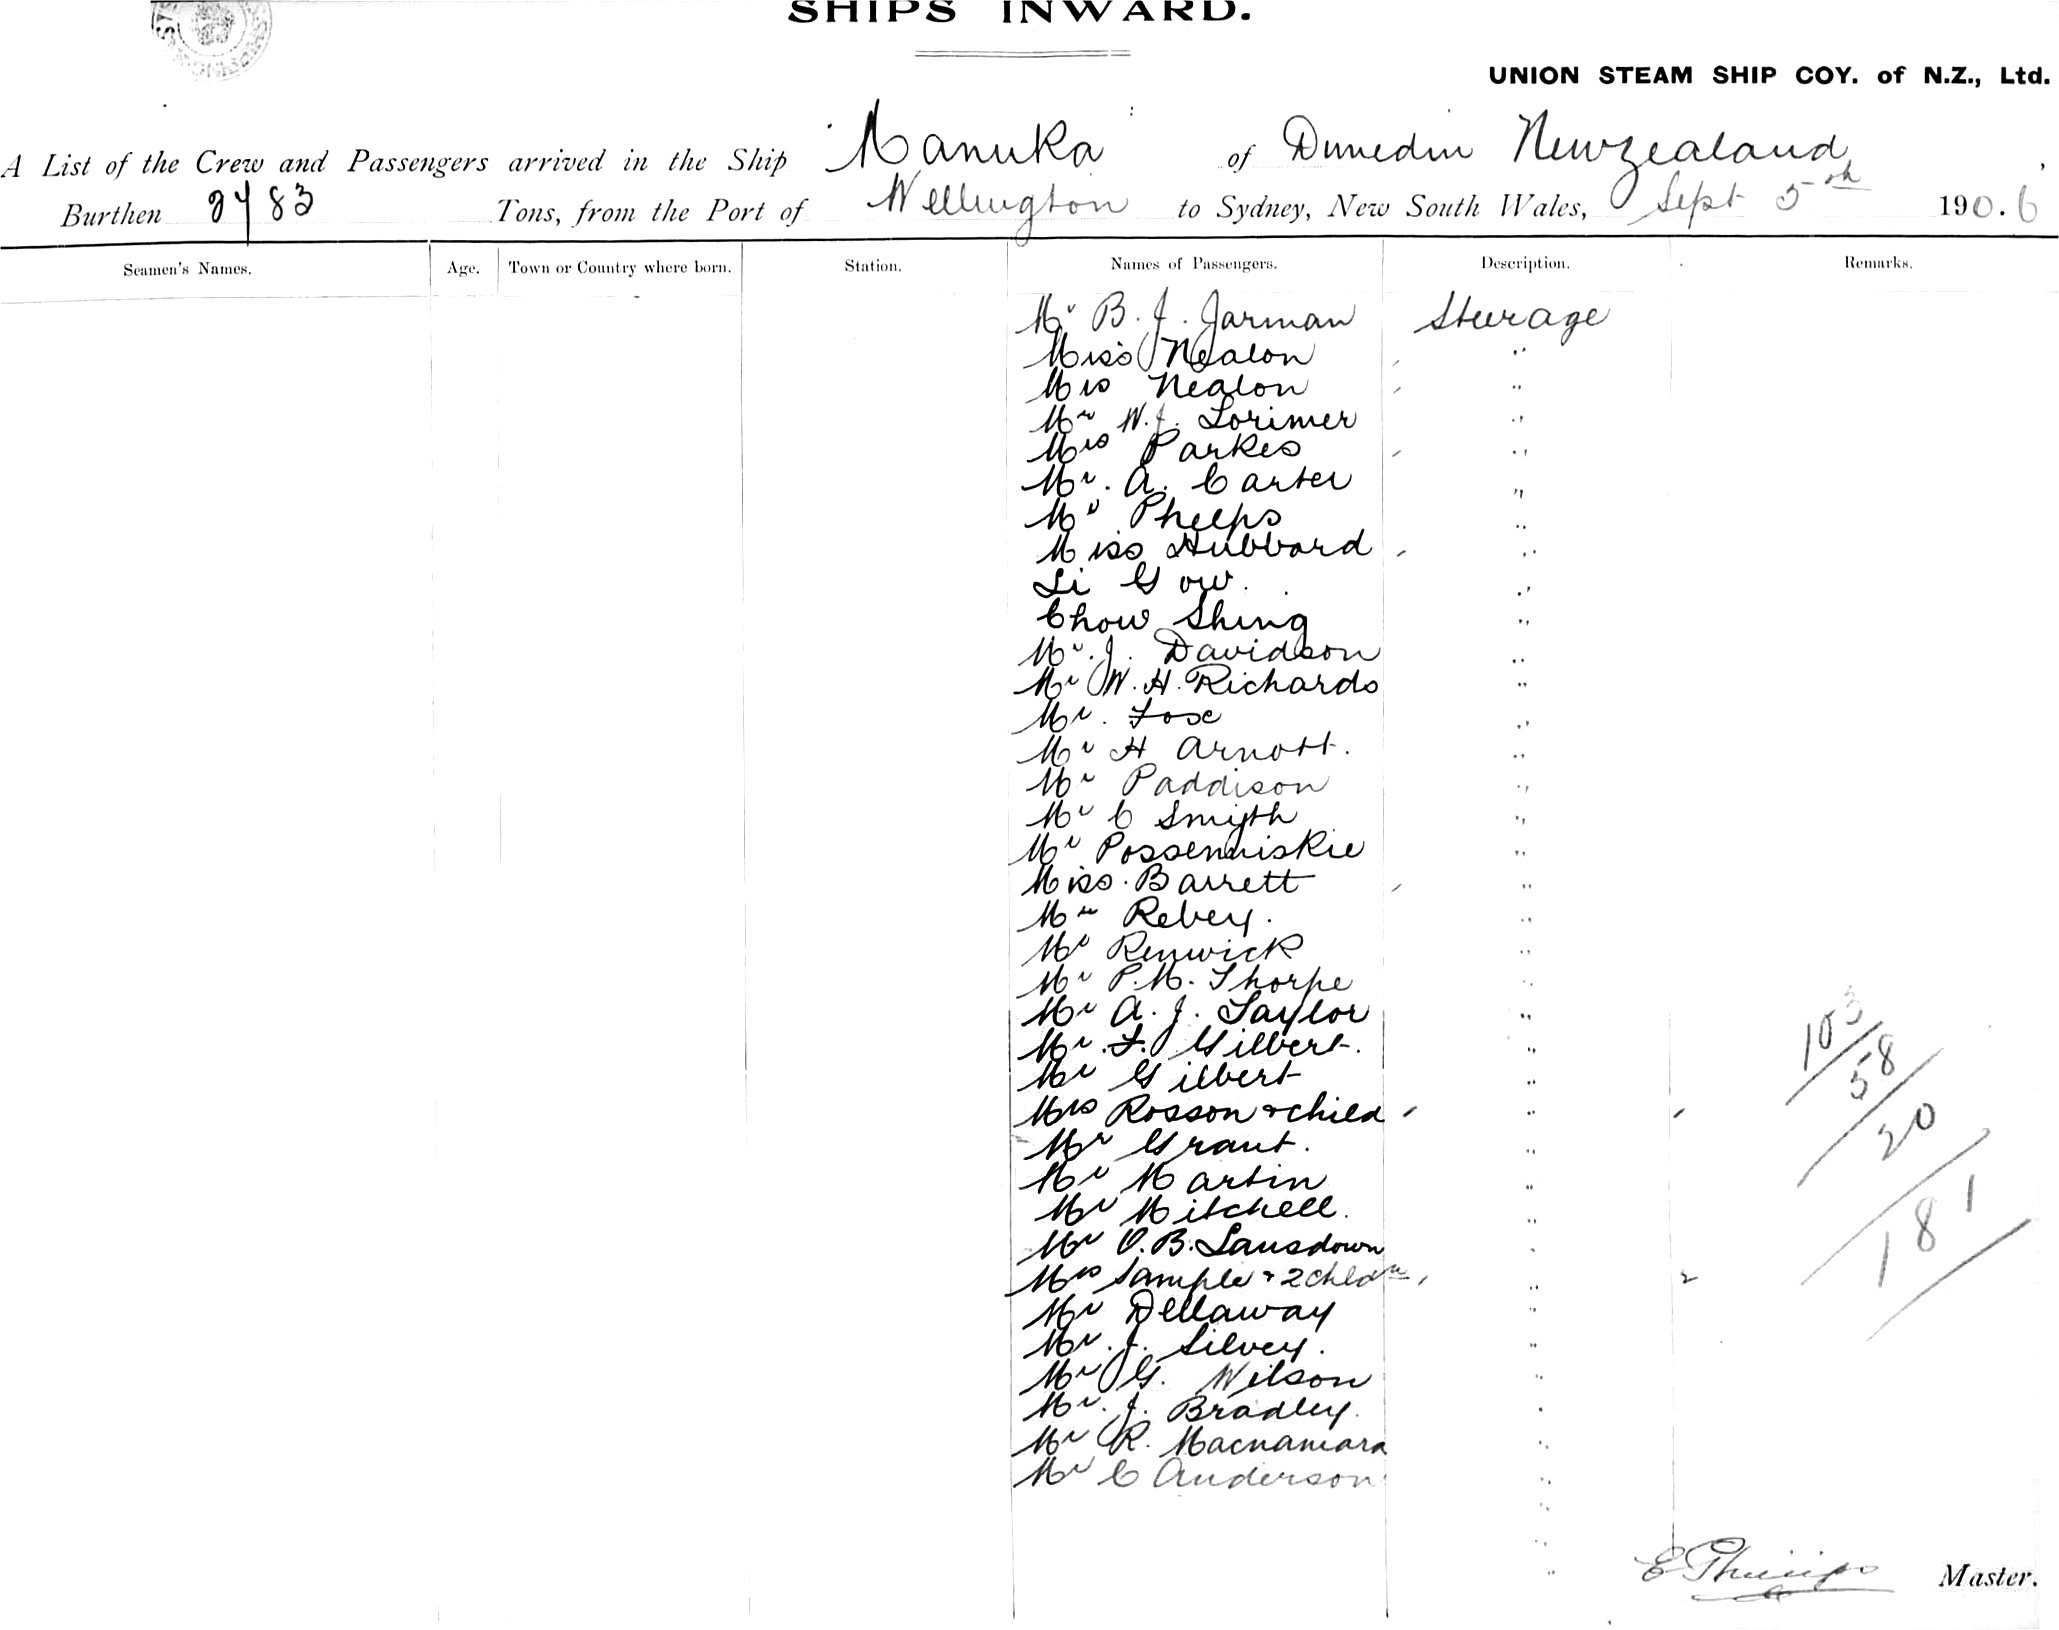 SHIPS INWARD.
UNION STEAM SHIP COY. of N.Z., Ltd.
A List of the Crew and Passengers arrived in the Ship "Manuka" of Dunedin Newzealand,
Burthen 2783 Tons, from the Port of Wellington to Sydney, New South Wales, Sept 5th 190.6
Seamen's Names. Age. Town or Country where born. Station. Names of Passengers. Description. Remarks.
Mr B. J. Jarman Steerage
Miss Nealon "
Mrs Nealon "
Mr W. J. Lorimer "
Mrs Parkes "
Mr. A. Carter "
Mr Phelps "
Miss Hubbard "
Li Gow. "
Chow Shing "
Mr. J. Davidson "
Mr W. H. Richards "
Mr. Fose "
Mr H Arnott. "
Mr Paddison "
Mr C Smyth "
Mr Possenniskie "
Miss. Barrett "
Mr Rebey. "
Mr Renwick "
Mr P. M. Thorpe "
Mr A. J. Taylor "
Mr. F. Gilbert. "
Mr Gilbert "
Mrs Rosson & child "
Mr Grant. "
Mr Martin "
Mr Mitchell. "
Mr O. B. Lansdown "
Mrs Sample & 2 chldn " 2
Mr Dellaway "
Mr. J. Silvey. "
Mr G. Wilson "
Mr. J. Bradley. "
Mr R. Macnamara "
Mr C Anderson "
103
58
20
181
E Phillips Master.